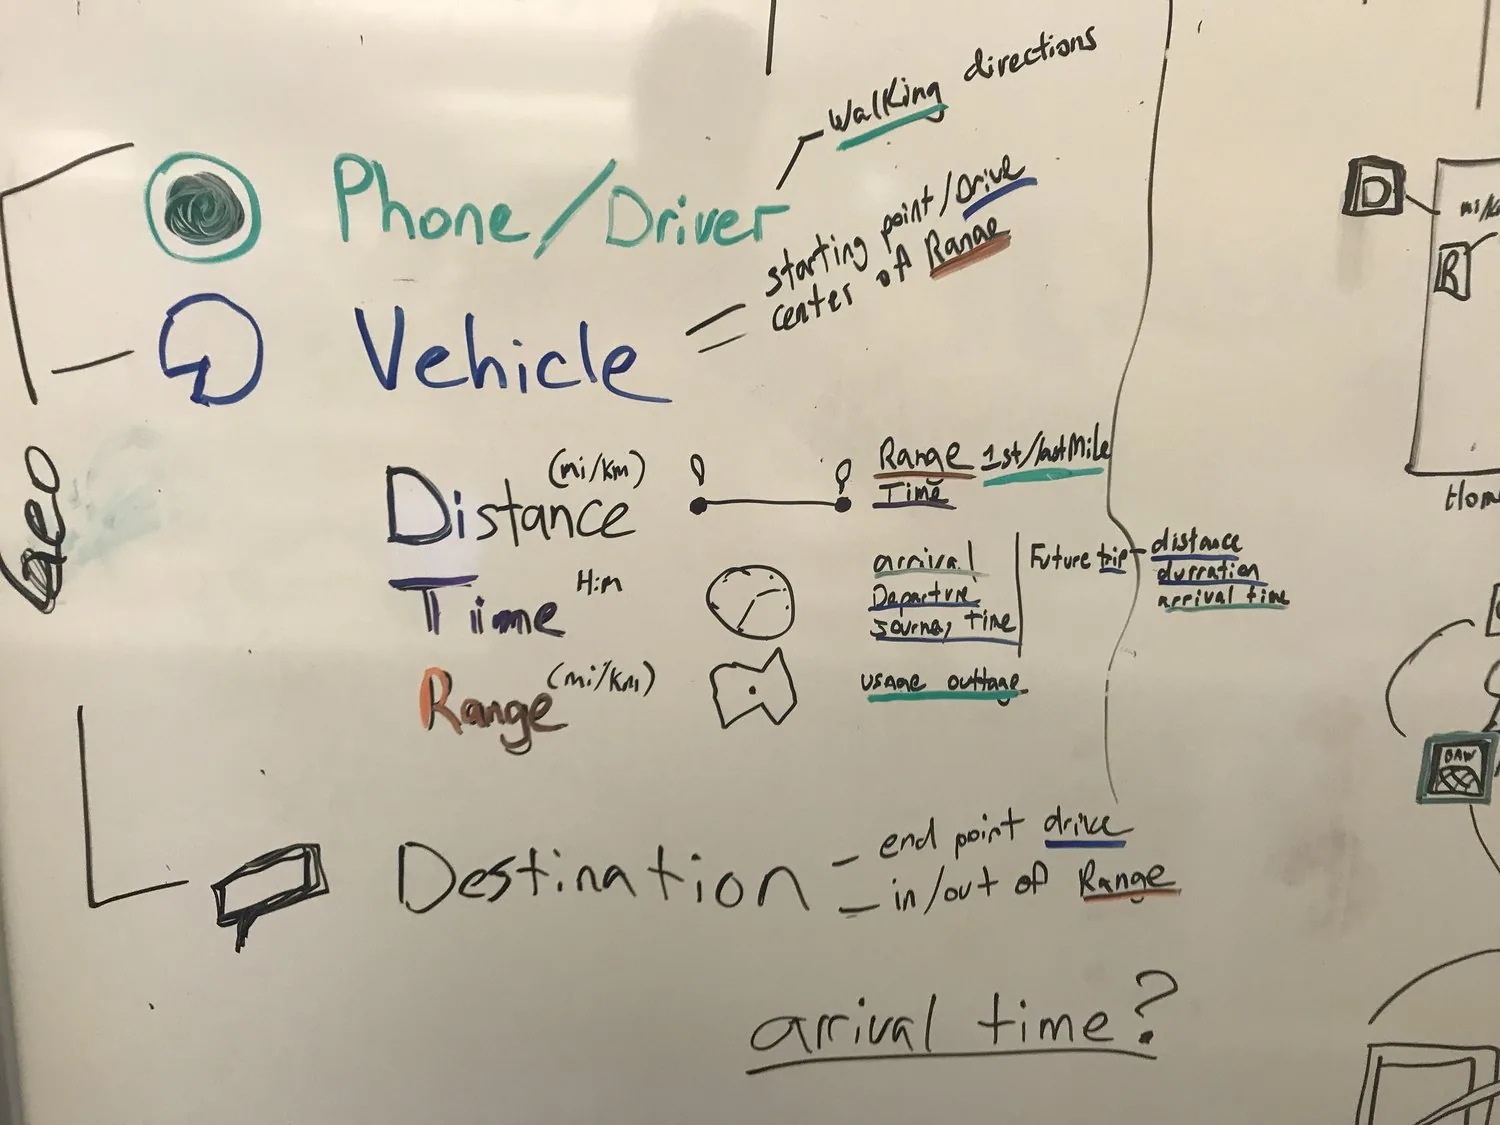 Walking directions
Phone/Driver
starting point/Drive
center of Range
Vehicle
Geo
(mi/km)
Distance
Range 1st/last Mile
Time
H:m
Time
arrival
Departure
Journey time
Future trip
distance
durration
arrival time
(mi/km)
Range
usage outtage
Destination
end point drive
in/out of Range
arrival time?
D
R